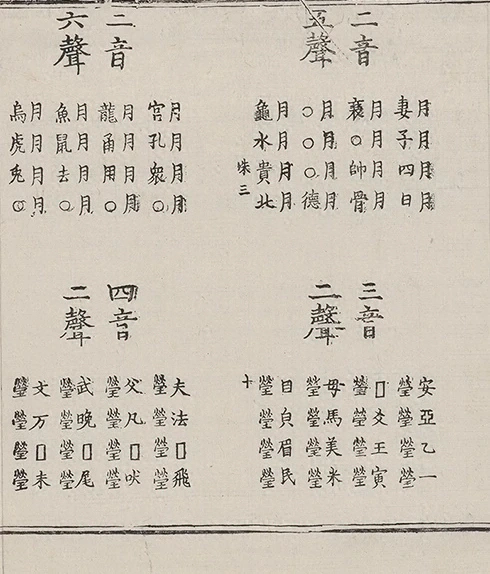 二音
五聲
月月月月
妻子四日
月月月月
衰○帥骨
月月月月
○○○德
月月月月
龜水貴北
三
三音
二聲
安亞乙一
瑩瑩瑩瑩
□爻王寅
瑩瑩瑩瑩
母馬美米
瑩瑩瑩瑩
目皃眉民
瑩瑩瑩瑩
十
二音
六聲
月月月月
宮孔衆○
月月月月
龍甬用○
月月月月
魚鼠去○
月月月月
烏虎兔○
四音
二聲
夫法□飛
瑩瑩瑩瑩
父凡□吠
瑩瑩瑩瑩
武晚□尾
瑩瑩瑩瑩
文万□未
瑩瑩瑩瑩